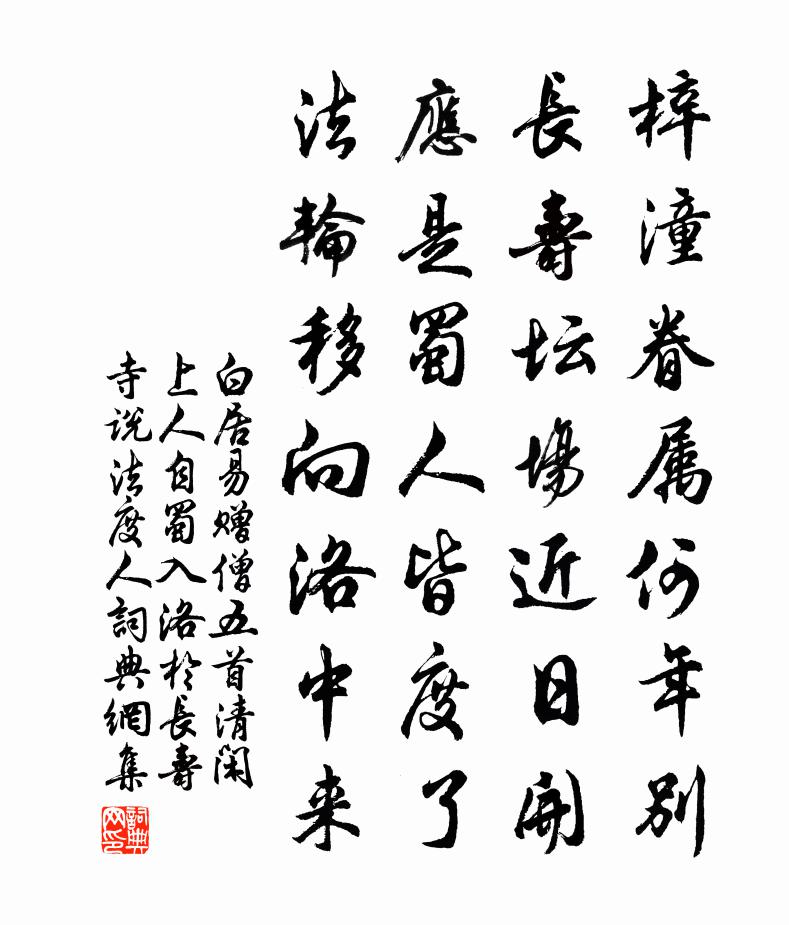 梓潼眷属何年別
長壽坛場近日開
應是蜀人皆度了
法輪移向洛中来
白居易贈僧五首清閑
上人自蜀入洛於長壽
寺说法度人詞典網集
詞典网印